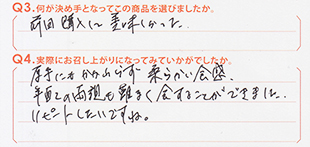 Q3.何が決め手となってこの商品を選びましたか。
前回購入して美味しかった.
Q4.実際にお召し上がりになってみていかがでしたか。
厚手にもかかわらず柔らかい食感.
年配の両親も難なく食することができました.
リピートしたいですね。